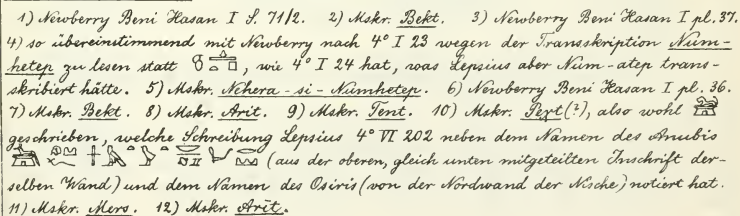 1) Newberry Beni Hasan I S. 71/2. 2) Mskr. Bekt. 3) Newberry Beni Hasan I pl. 37.
4) so übereinstimmend mit Newberry nach 4° I 23 wegen der Transskription Num-
hetep zu lesen statt , wie 4° I 24 hat, was Lepsius aber Num-atep trans-
skribiert hätte. 5) Mskr. Nehera-si-Numhetep. 6) Newberry Beni Hasan I pl. 36.
7) Mskr. Bekt. 8) Mskr. Arit. 9) Mskr. Tent. 10) Mskr. Pext(?), also wohl
geschrieben, welche Schreibung Lepsius 4° VI 202 neben dem Namen des Anubis
(aus der oberen, gleich unten mitgeteilten Inschrift der-
selben Wand) und dem Namen des Osiris (von der Nordwand der Nische) notiert hat.
11) Mskr. Mers. 12) Mskr. Arit.